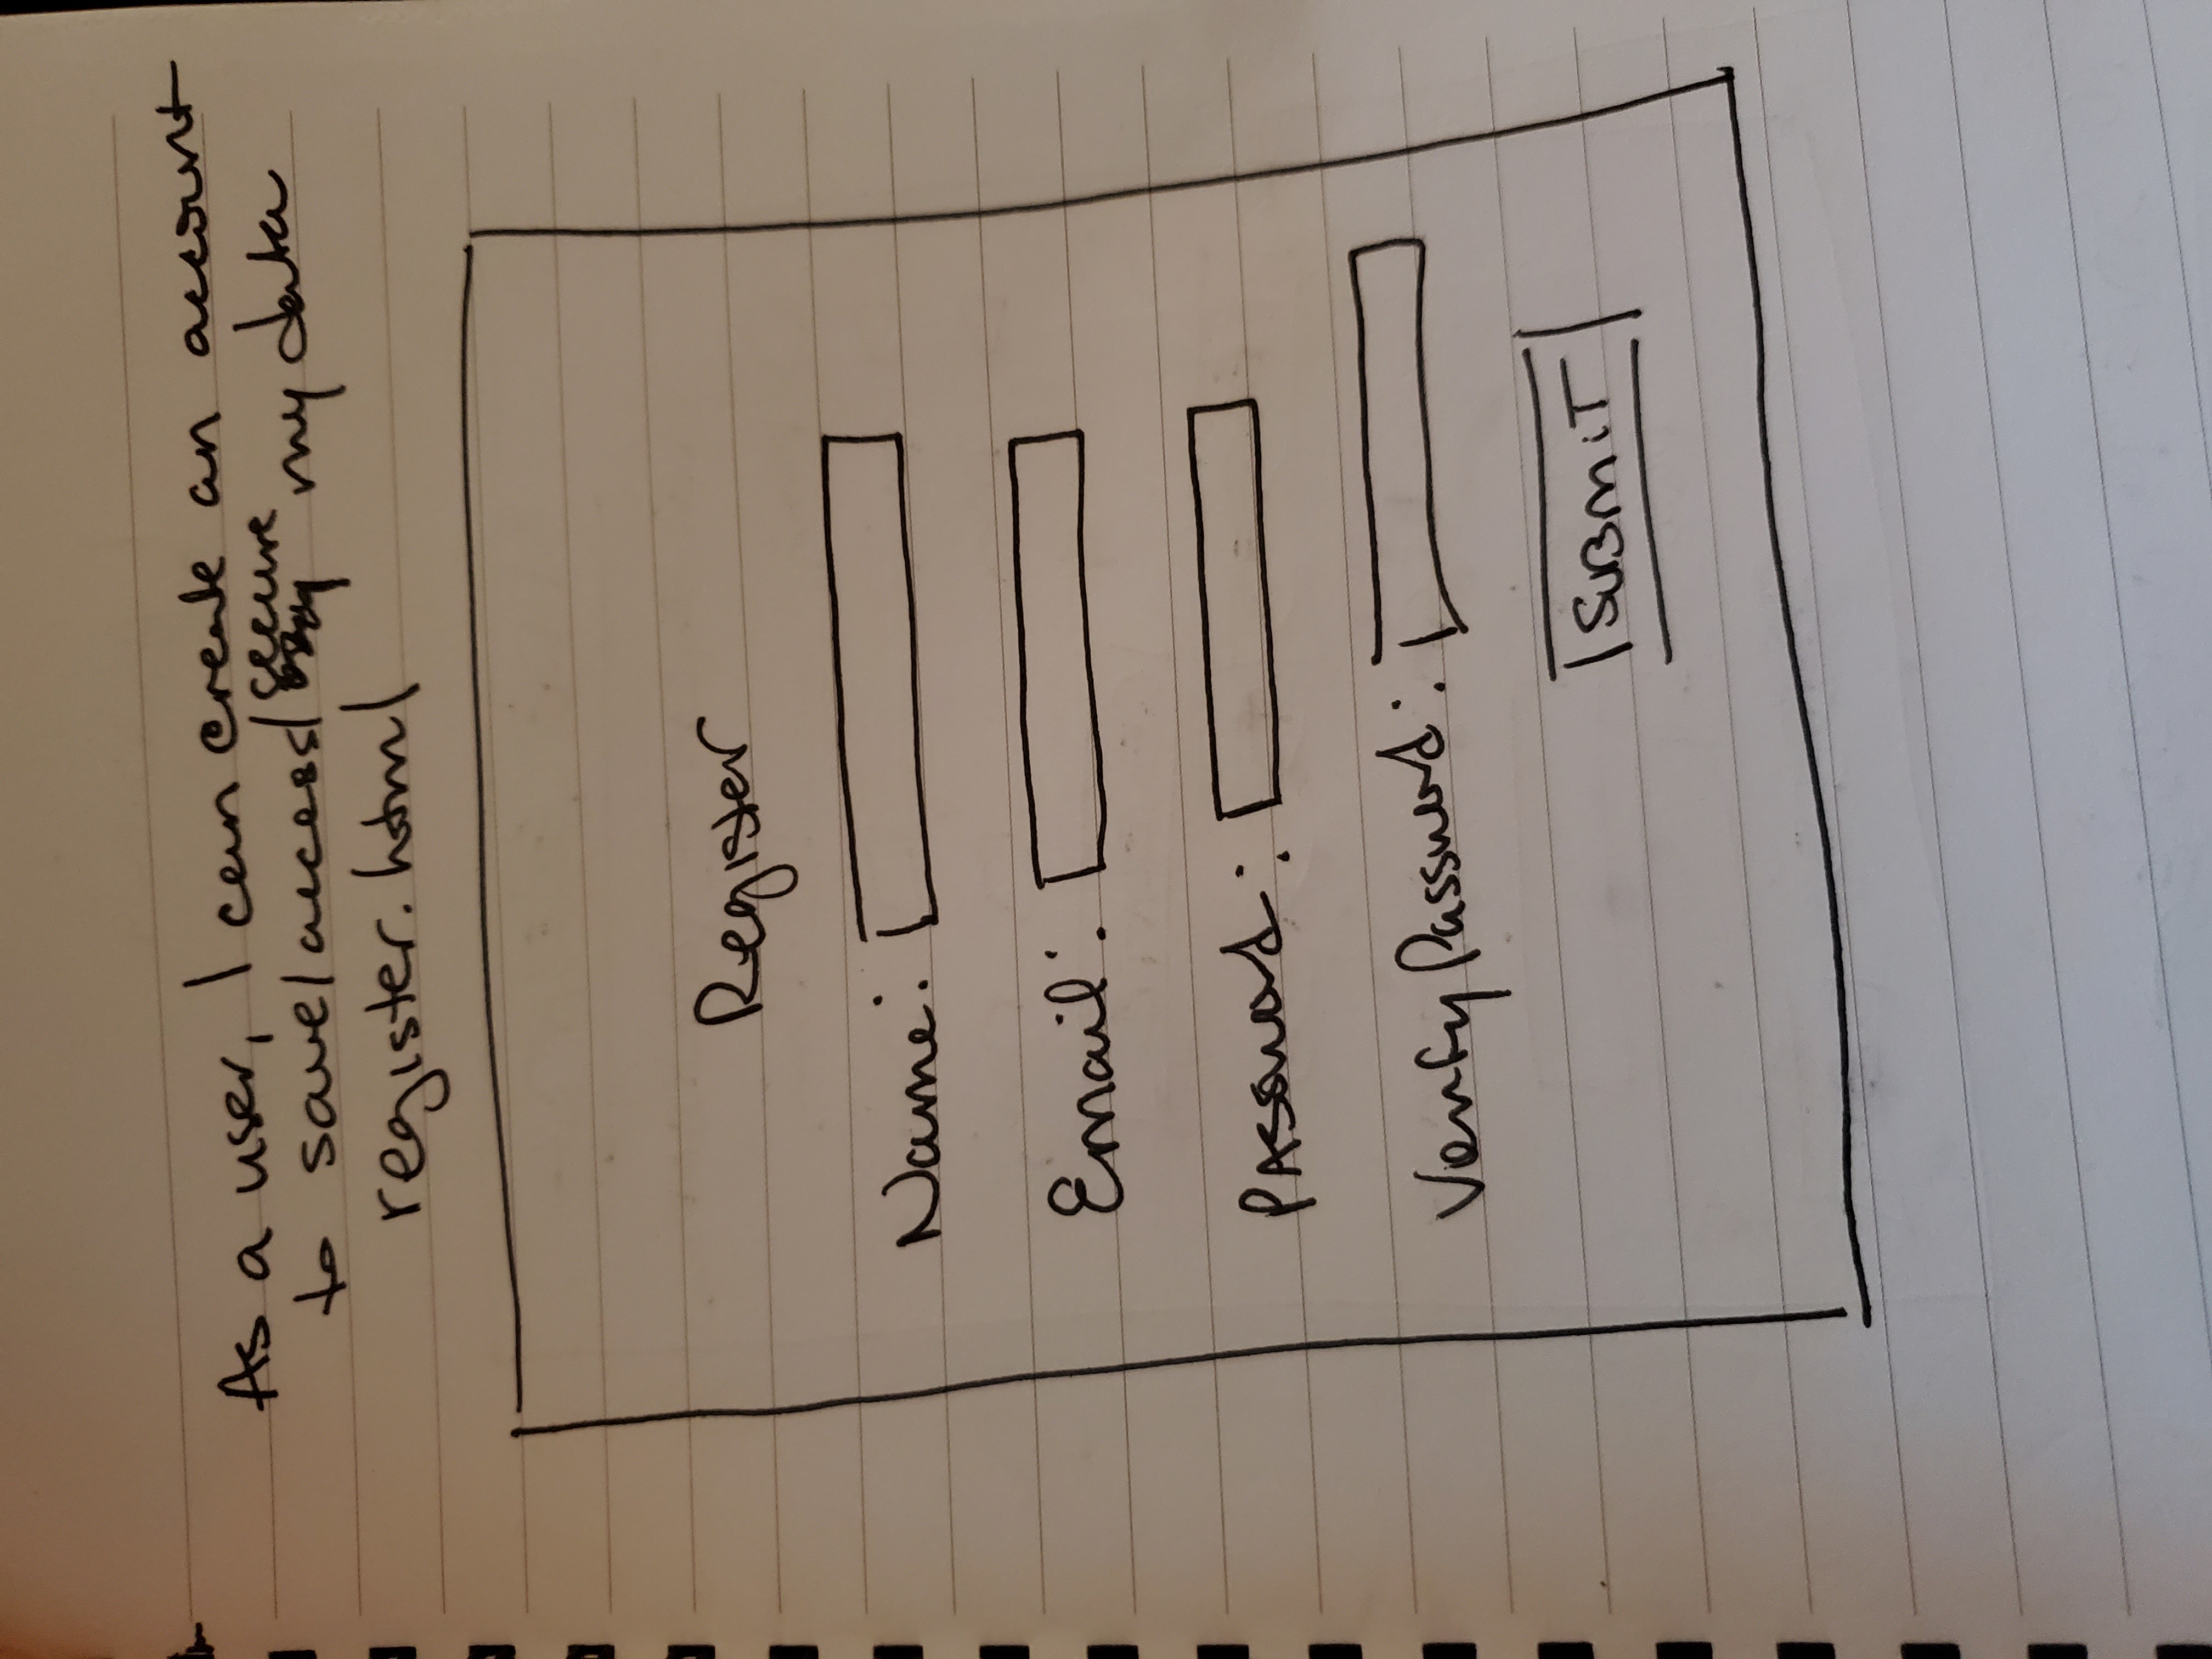 As a user, I can create an account
to save/access/secure my data
register.html
Register
Name:
Email:
Password:
Verify Password:
SUBMIT